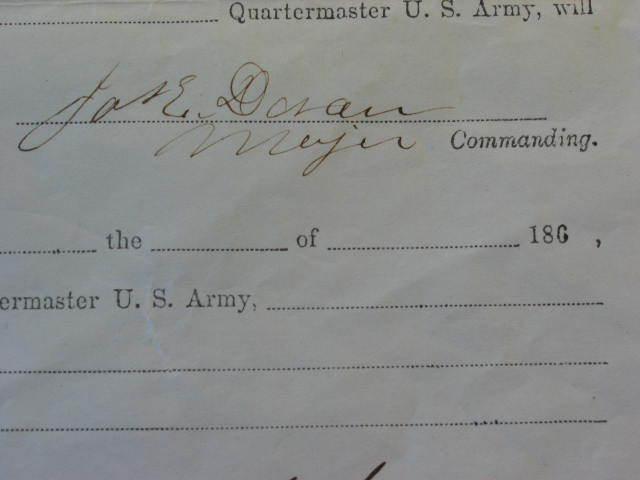 Quartermaster U. S. Army, will
Jo K E. Doran
Major Commanding.
the of 186 ,
ermaster U. S. Army,